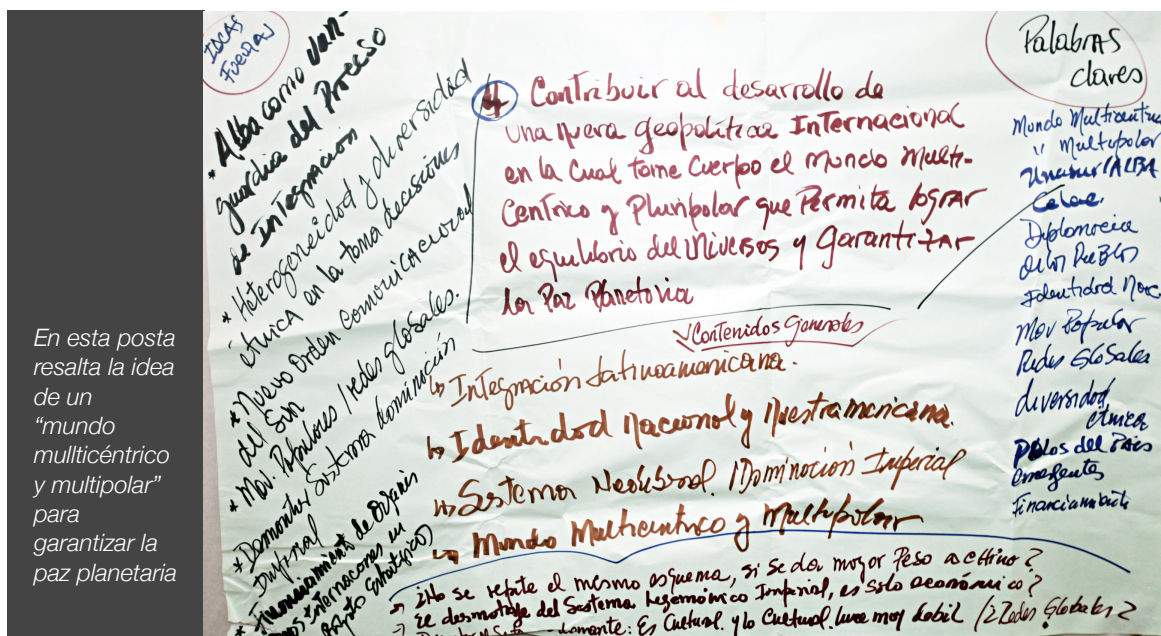 En esta posta
resalta la idea
de un
“mundo
mullticéntrico
y multipolar”
para
garantizar la
paz planetaria
IDEAS
FUERZAS
* Alba como Van-
guardia del Proceso
de Integración
* Heterogeneidad y diversidad
étnica en la toma decisiones
* Nuevo Orden comunicacional
del Sur
* Mov. Populares / redes globales.
* Desmontar Sistema dominación
Imperial
Financiamiento de Organis
mos Internacionales en
Estratégico)
4 Contribuir al desarrollo de
una nueva geopolítica Internacional
en la Cual tome Cuerpo el mundo Multi-
Centrico y Pluripolar que Permita lograr
el equilibrio del Universos y Garantizar
la Paz Planetaria
Contenidos Generales
↳ Integración Latinoamericana.
↳ Identidad Nacional y Nuestramericana.
↳ Sistema Neoliberal / Dominación Imperial
↳ Mundo Multicentrico y Multipolar
→ ¿No se repite el mismo esquema, si se da mayor Peso a China?
→ El desmontaje del Sistema hegemónico Imperial, es solo económico?
Es Cultural. y lo Cultural luce muy debil / ¿Redes Globales?
Palabras
claves
Mundo Multicentrico
" Multipolar
Unasur / ALBA
Celac
Diplomacia
de los Pueblos
Identidad Nac
Mov Popular
Redes Globales
diversidad
étnica
Polos del País
emergentes
Financiamiento